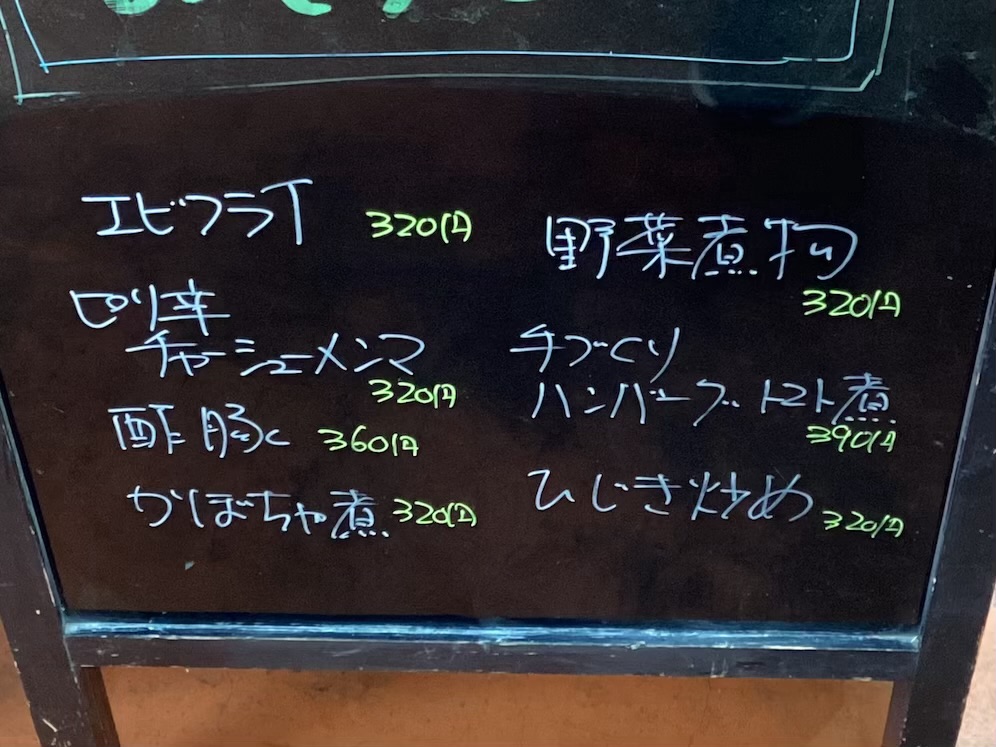 エビフライ 320円
ピリ辛
チャーシューメンマ
320円
酢豚 360円
かぼちゃ煮 320円
野菜煮物
320円
手づくり
ハンバーグトマト煮
390円
ひじき炒め 320円